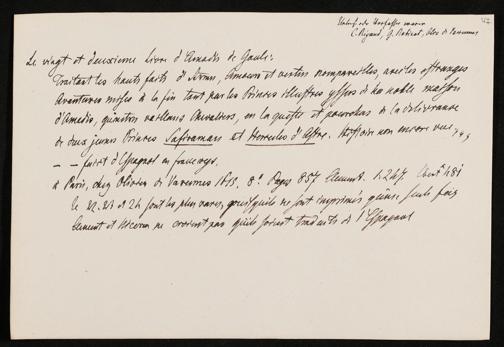 47.
C. Rigaud, G. Robinot, Oliv. de Varennes
Le vingt et deuxieme livre d'Amadis de Gaule:
Traitant les hauts faits d'Armes, Amours et vertus nompareilles, avec les estranges
Aventures mises à la fin tant par les Princes illustres yssus de la noble maison
d'Amadis, qu'autres vaillans Chevaliers, en la queste et pourchas de la delivrance
de deux jeunes Princes Safiraman et Hercules d'Astre. Histoire non encore vue
— — faict d'Espagnol en françoys.
à Paris, chez Olivier de Varennes 1615. 8°. Pages 857 Clement. 1.247.
le 22. 23 et 24 sont les plus rares, puisqu'ils ne sont imprimés qu'une seule fois
Clement et Niceron ne croient pas qu'ils soient traduits de l'Espagnol